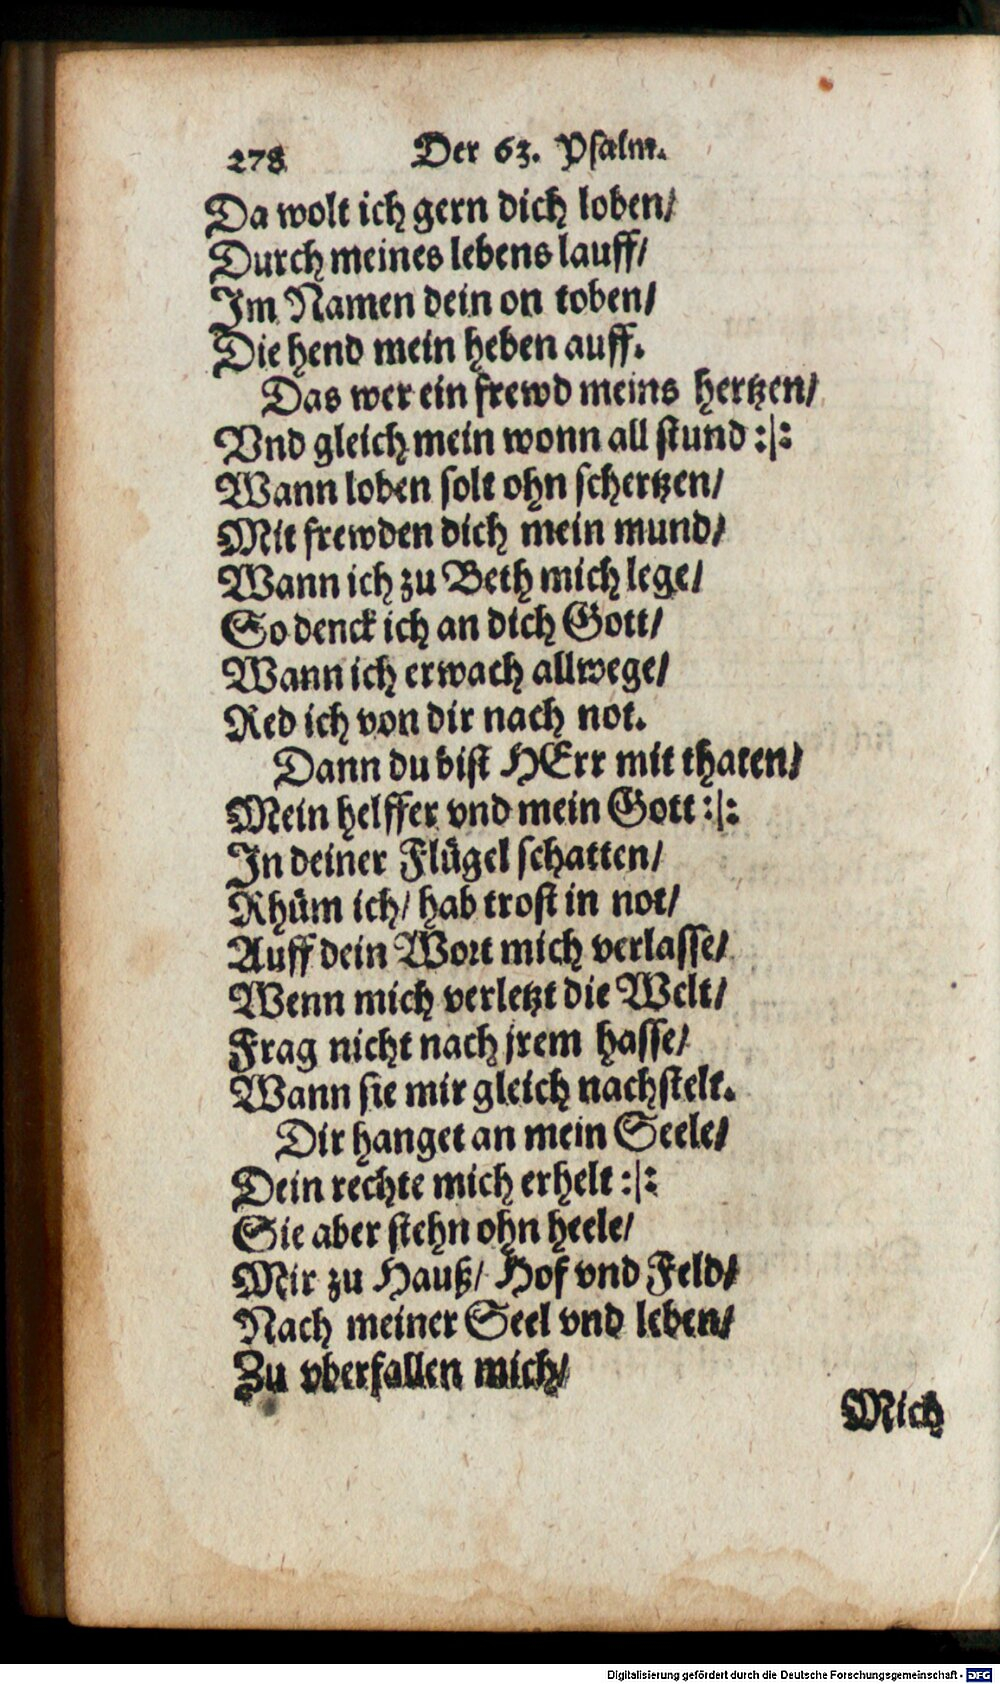 278 Der 63. Psalm.
Da wolt ich gern dich loben/
Durch meines lebens lauff/
Im Namen dein on toben/
Die hend mein heben auff.
Das wer ein frewd meins hertzen/
Vnd gleich mein wonn all stund :|:
Wann loben solt ohn schertzen/
Mit frewden dich mein mund/
Wann ich zu Beth mich lege/
So denck ich an dich Gott/
Wann ich erwach allwege/
Red ich von dir nach not.
Dann du bist HErr mit thaten/
Mein helffer vnd mein Gott :|:
In deiner Flügel schatten/
Rhüm ich/ hab trost in not/
Auff dein Wort mich verlasse/
Wenn mich verletzt die Welt/
Frag nicht nach jrem hasse/
Wann sie mir gleich nachstelt.
Dir hanget an mein Seele/
Dein rechte mich erhelt :|:
Sie aber stehn ohn heele/
Mir zu Hauß/ Hof vnd Feld/
Nach meiner Seel vnd leben/
Zu vberfallen mich/
Mich
Digitalisierung gefördert durch die Deutsche Forschungsgemeinschaft - DFG